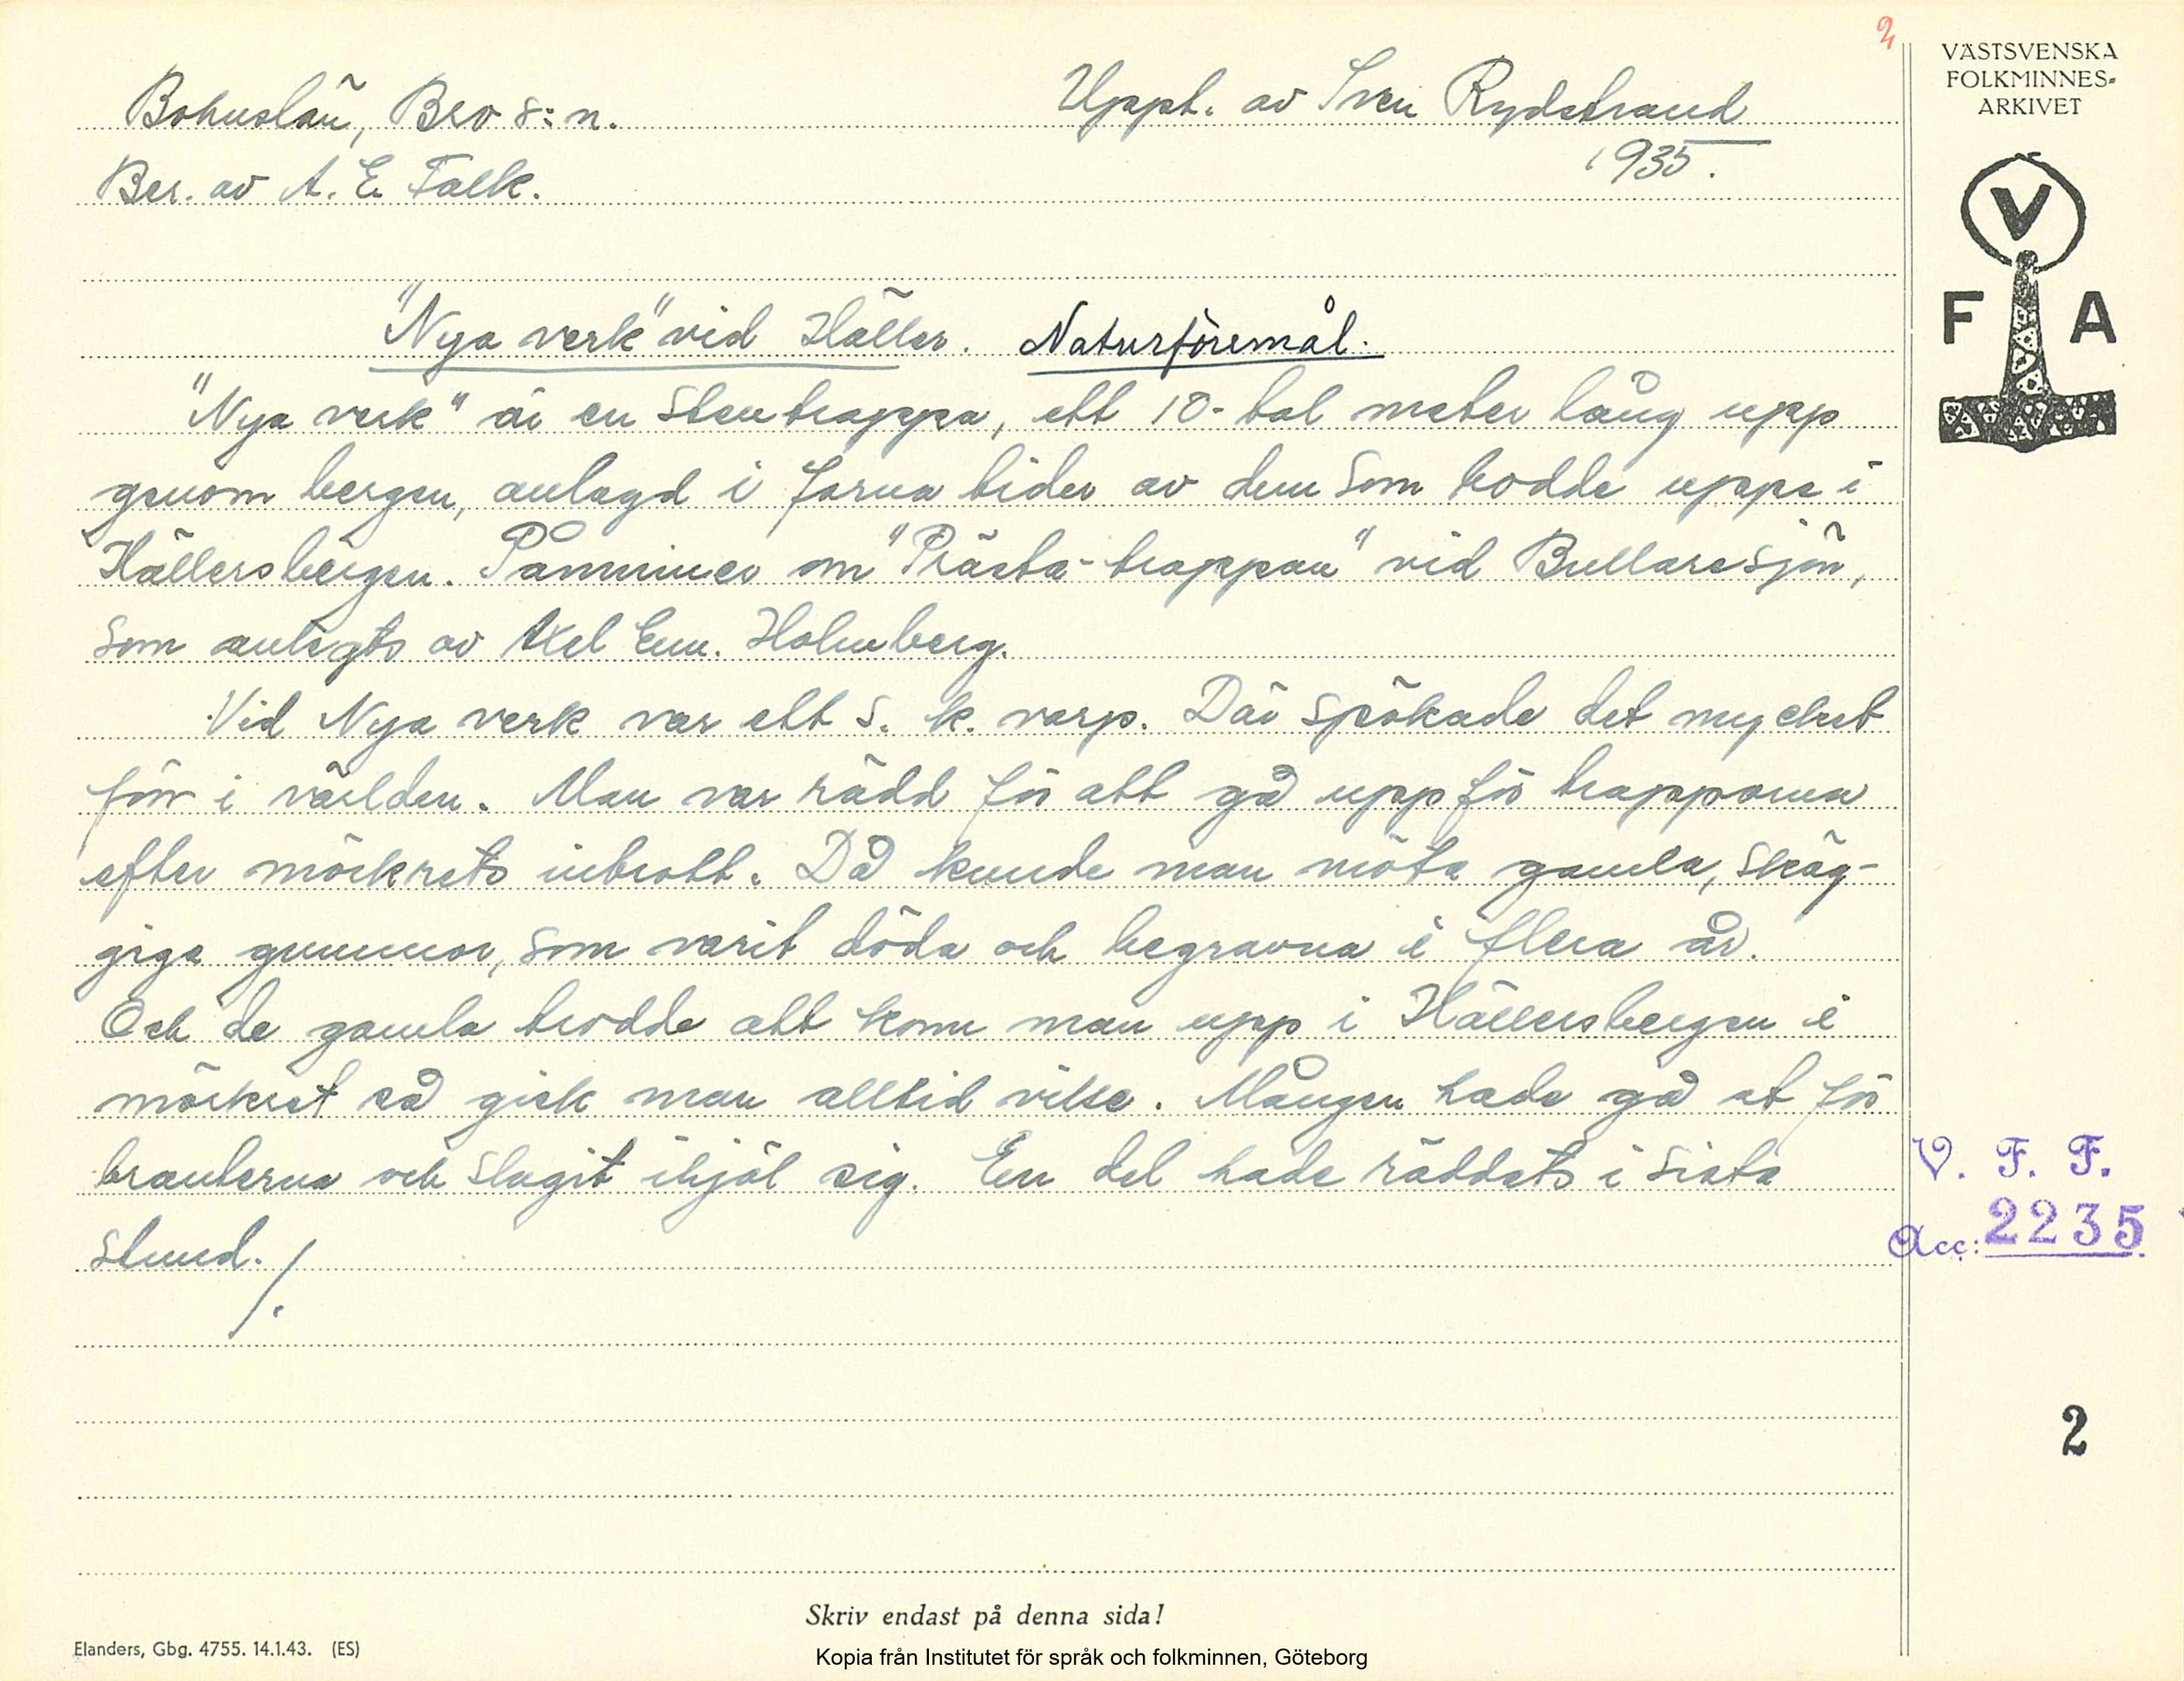 2
VÄSTSVENSKA
FOLKMINNES-
ARKIVET
Bohuslän, Bro s:n.
Uppt. av Sven Rydstrand
1935.
Ber. av A. E. Falk.
V
F A
"Nya verk" vid Häller. Naturföremål.
"Nya verk" är en stentrappa, ett 10-tal meter lång upp
genom bergen, anlagd i forna tider av dem som bodde uppe i
Hällersbergen. Påminner om "Prästa-trappan" vid Bullaresjön,
som anlagts av Axel Em. Holmberg.
Vid Nya verk var ett s. k. varp. Där spökade det mycket
förr i världen. Man var rädd för att gå uppför trapporna
efter mörkrets inbrott. Då kunde man möta gamla, skäg-
giga gummor, som varit döda och begravna i flera år.
Och de gamla trodde att kom man upp i Hällersbergen i
mörkret så gick man alltid vilse. Mången hade gå ut för
branterna och slagit ihjäl sig. En del hade räddats i sista
stund. /.
V. F. F.
Acc: 2235
2
Skriv endast på denna sida!
Elanders, Gbg. 4755. 14.1.43. (ES)
Kopia från Institutet för språk och folkminnen, Göteborg